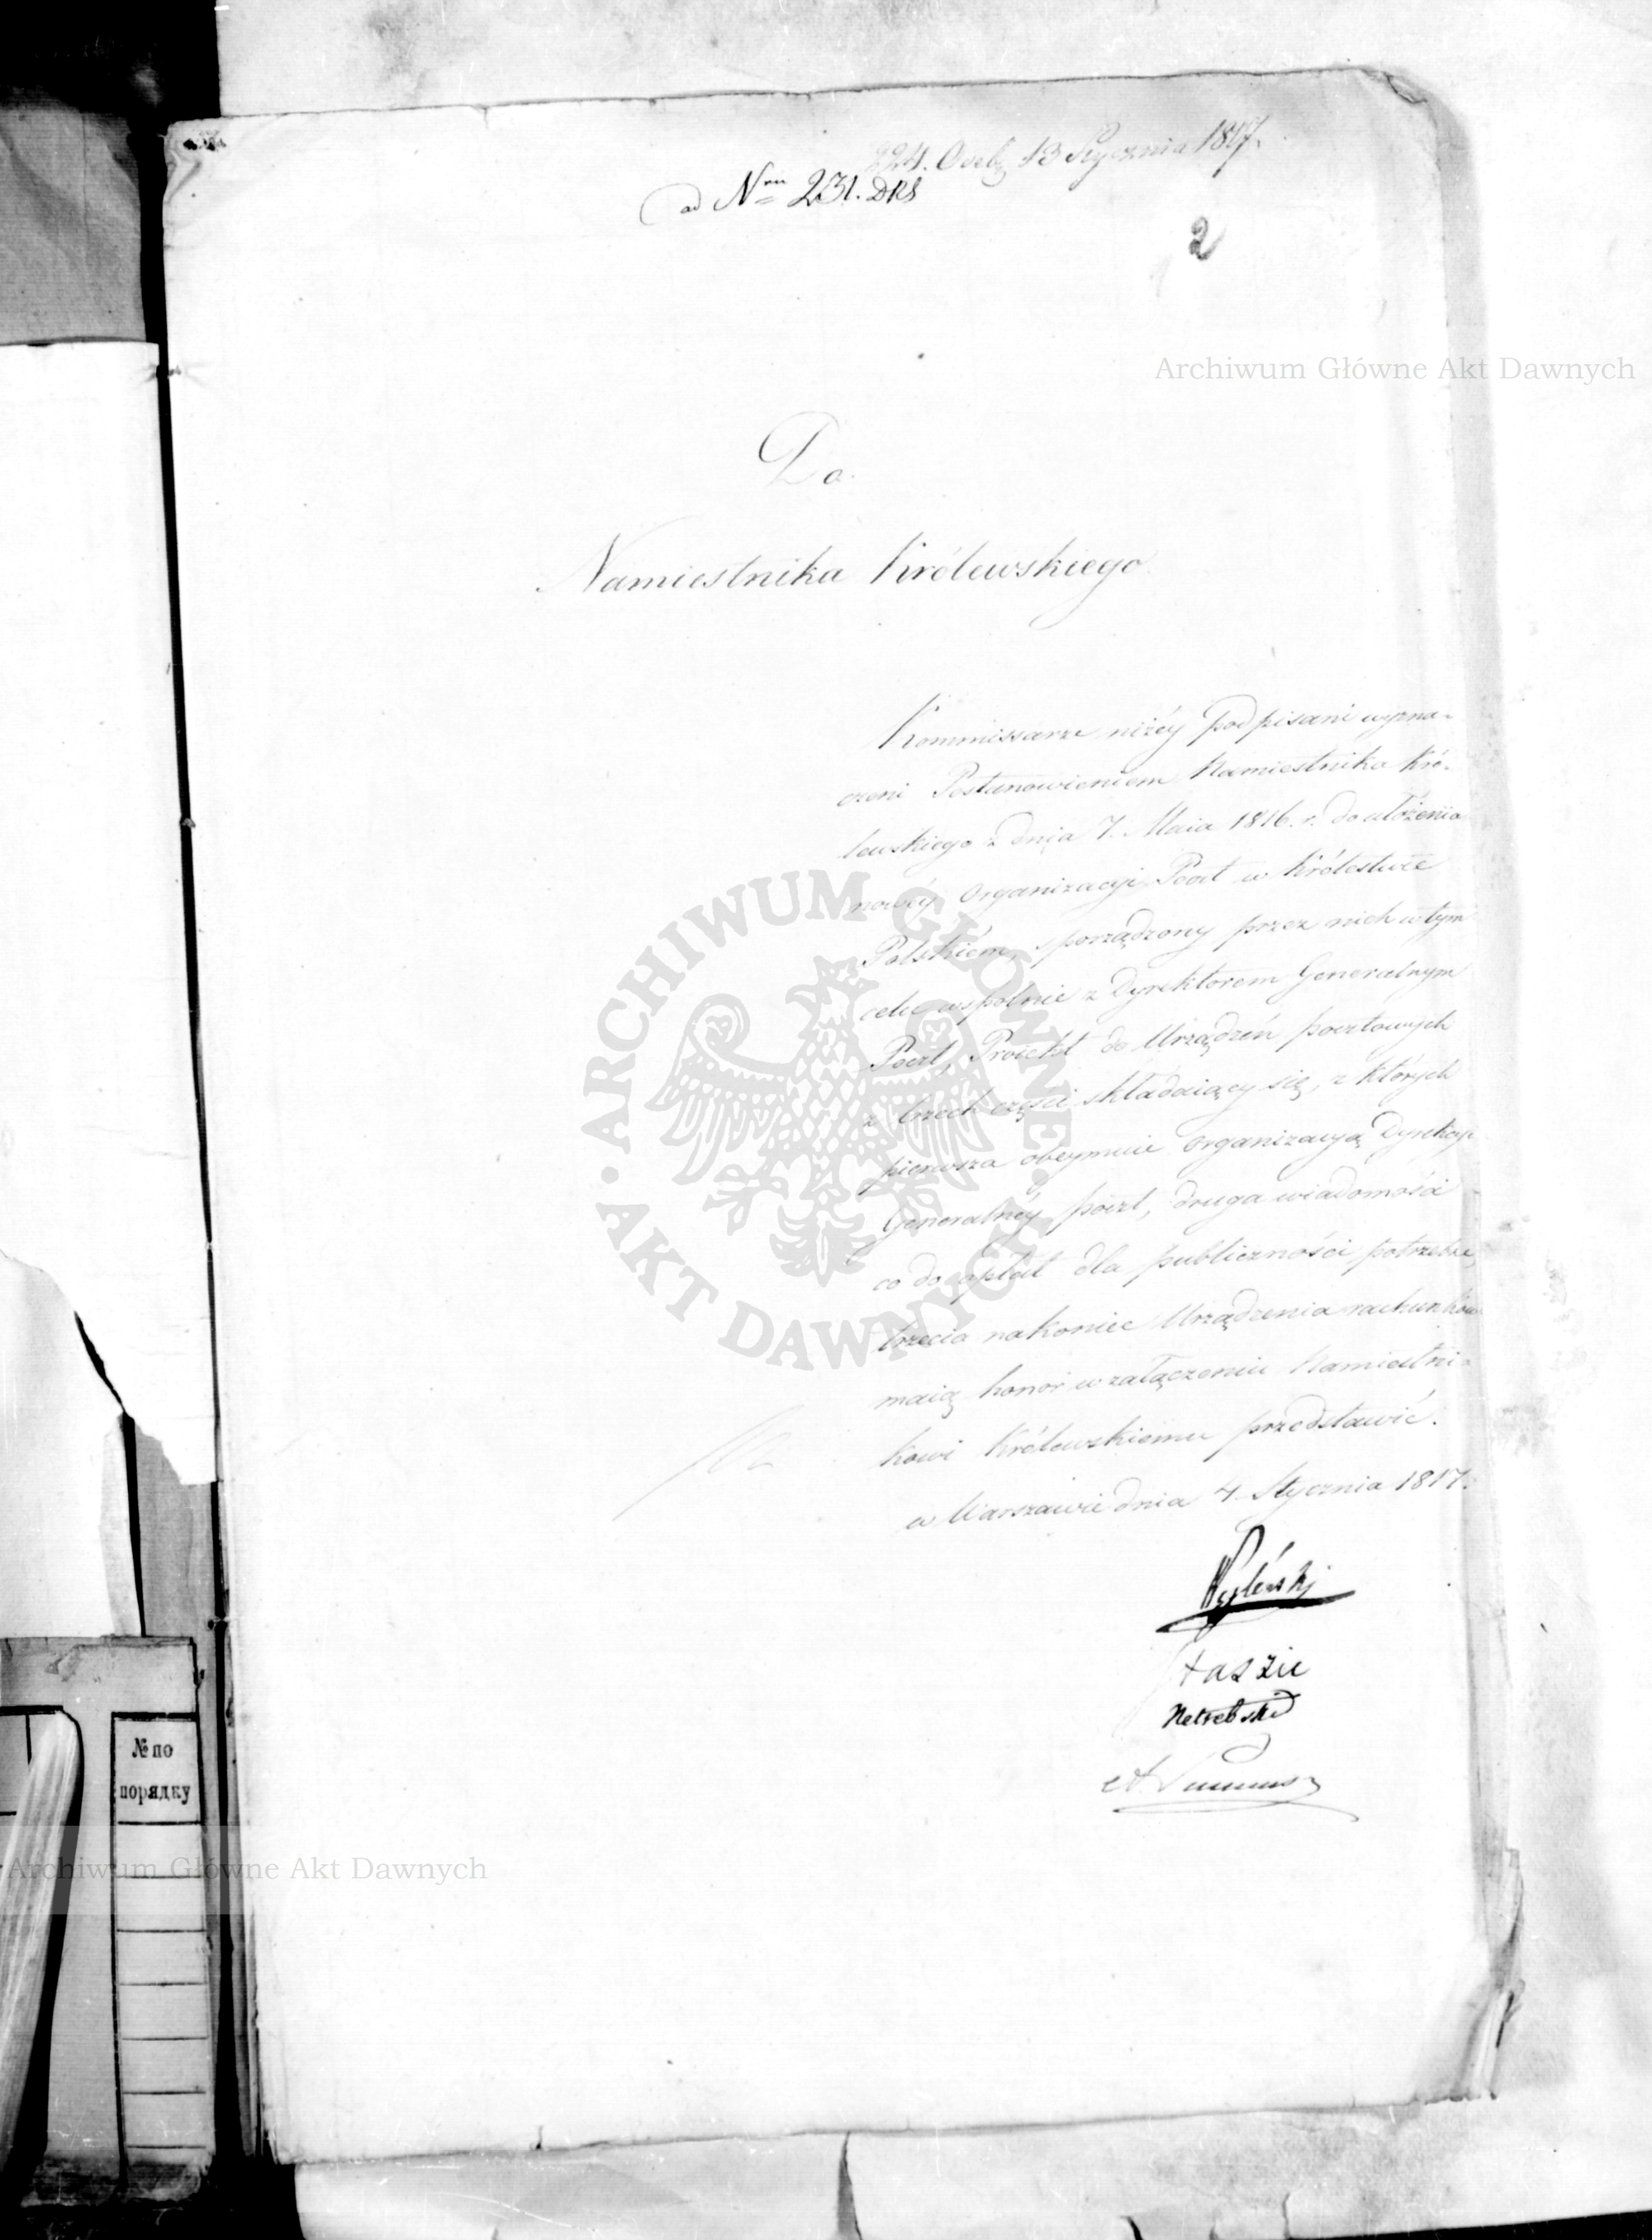 224. Odeb. 13 Stycznia 1817.
ad Nrn 231. DRS
2
Archiwum Główne Akt Dawnych
Do
Namiestnika Królewskiego
Kommissarze niżéy podpisani wyzna-
czeni Postanowieniem Namiestnika Kró-
lewskiego z dnia 7. Maia 1816. r. do ułożenia
nowéy Organizacyi Poczt w Królestwie
Polskiém, sporządzony przez nich w tym
celu wspolnie z Dyrektorem Generalnym
Poczt, Proiekt do Urządzeń pocztowych
z trzech części składaiący się, z których
pierwsza obeymuie organizacyą Dyrekcyi
Generalnéy poczt, druga wiadomości
co do opłat dla publiczności potrzebne
trzecia nakoniec Urządzenia rachunkowe
maią honor w załączeniu Namiestni-
kowi Królewskiemu przedstawić.
w Warszawie dnia 4. Stycznia 1817.
Węgleński
Staszic
Netrebski
ARCHIWUM GŁÓWNE AKT DAWNYCH
№ по
порядку
Archiwum Główne Akt Dawnych